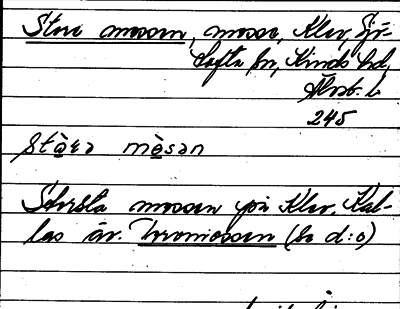 Stora mossen, mosse, Klev, Sjö-
tofta sn, Kinds hd,
Älvsb. l.
245
stò̱ra mò̱sən
Största mossen på Klev. Kal-
las äv. Tromossen (se d:o)